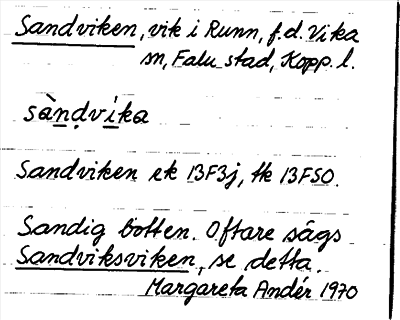 Sandviken, vik i Runn, f.d. Vika
sn, Falu stad, Kopp. l.
sàndvika
Sandviken ek 13F3j, tk 13FSO.
Sandig botten. Oftare sägs
Sandviksviken, se detta.
Margareta Andér 1970